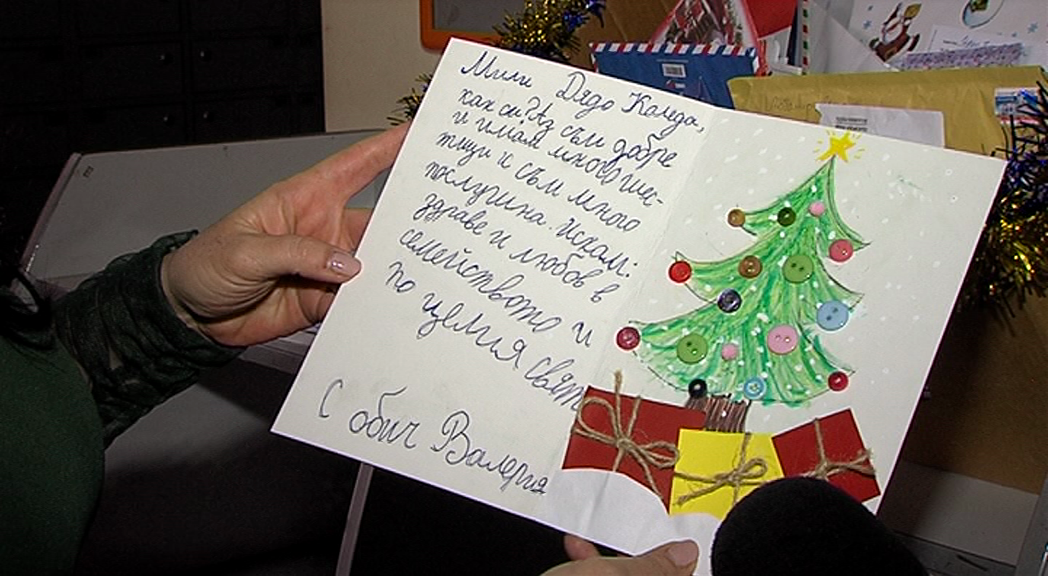 Мили Дядо Коледа,
как си? Аз съм добре
и имам много шес-
тици и съм много
послушна. Искам:
здраве и любов в
семейството и
по целия свят
С обич Валерия